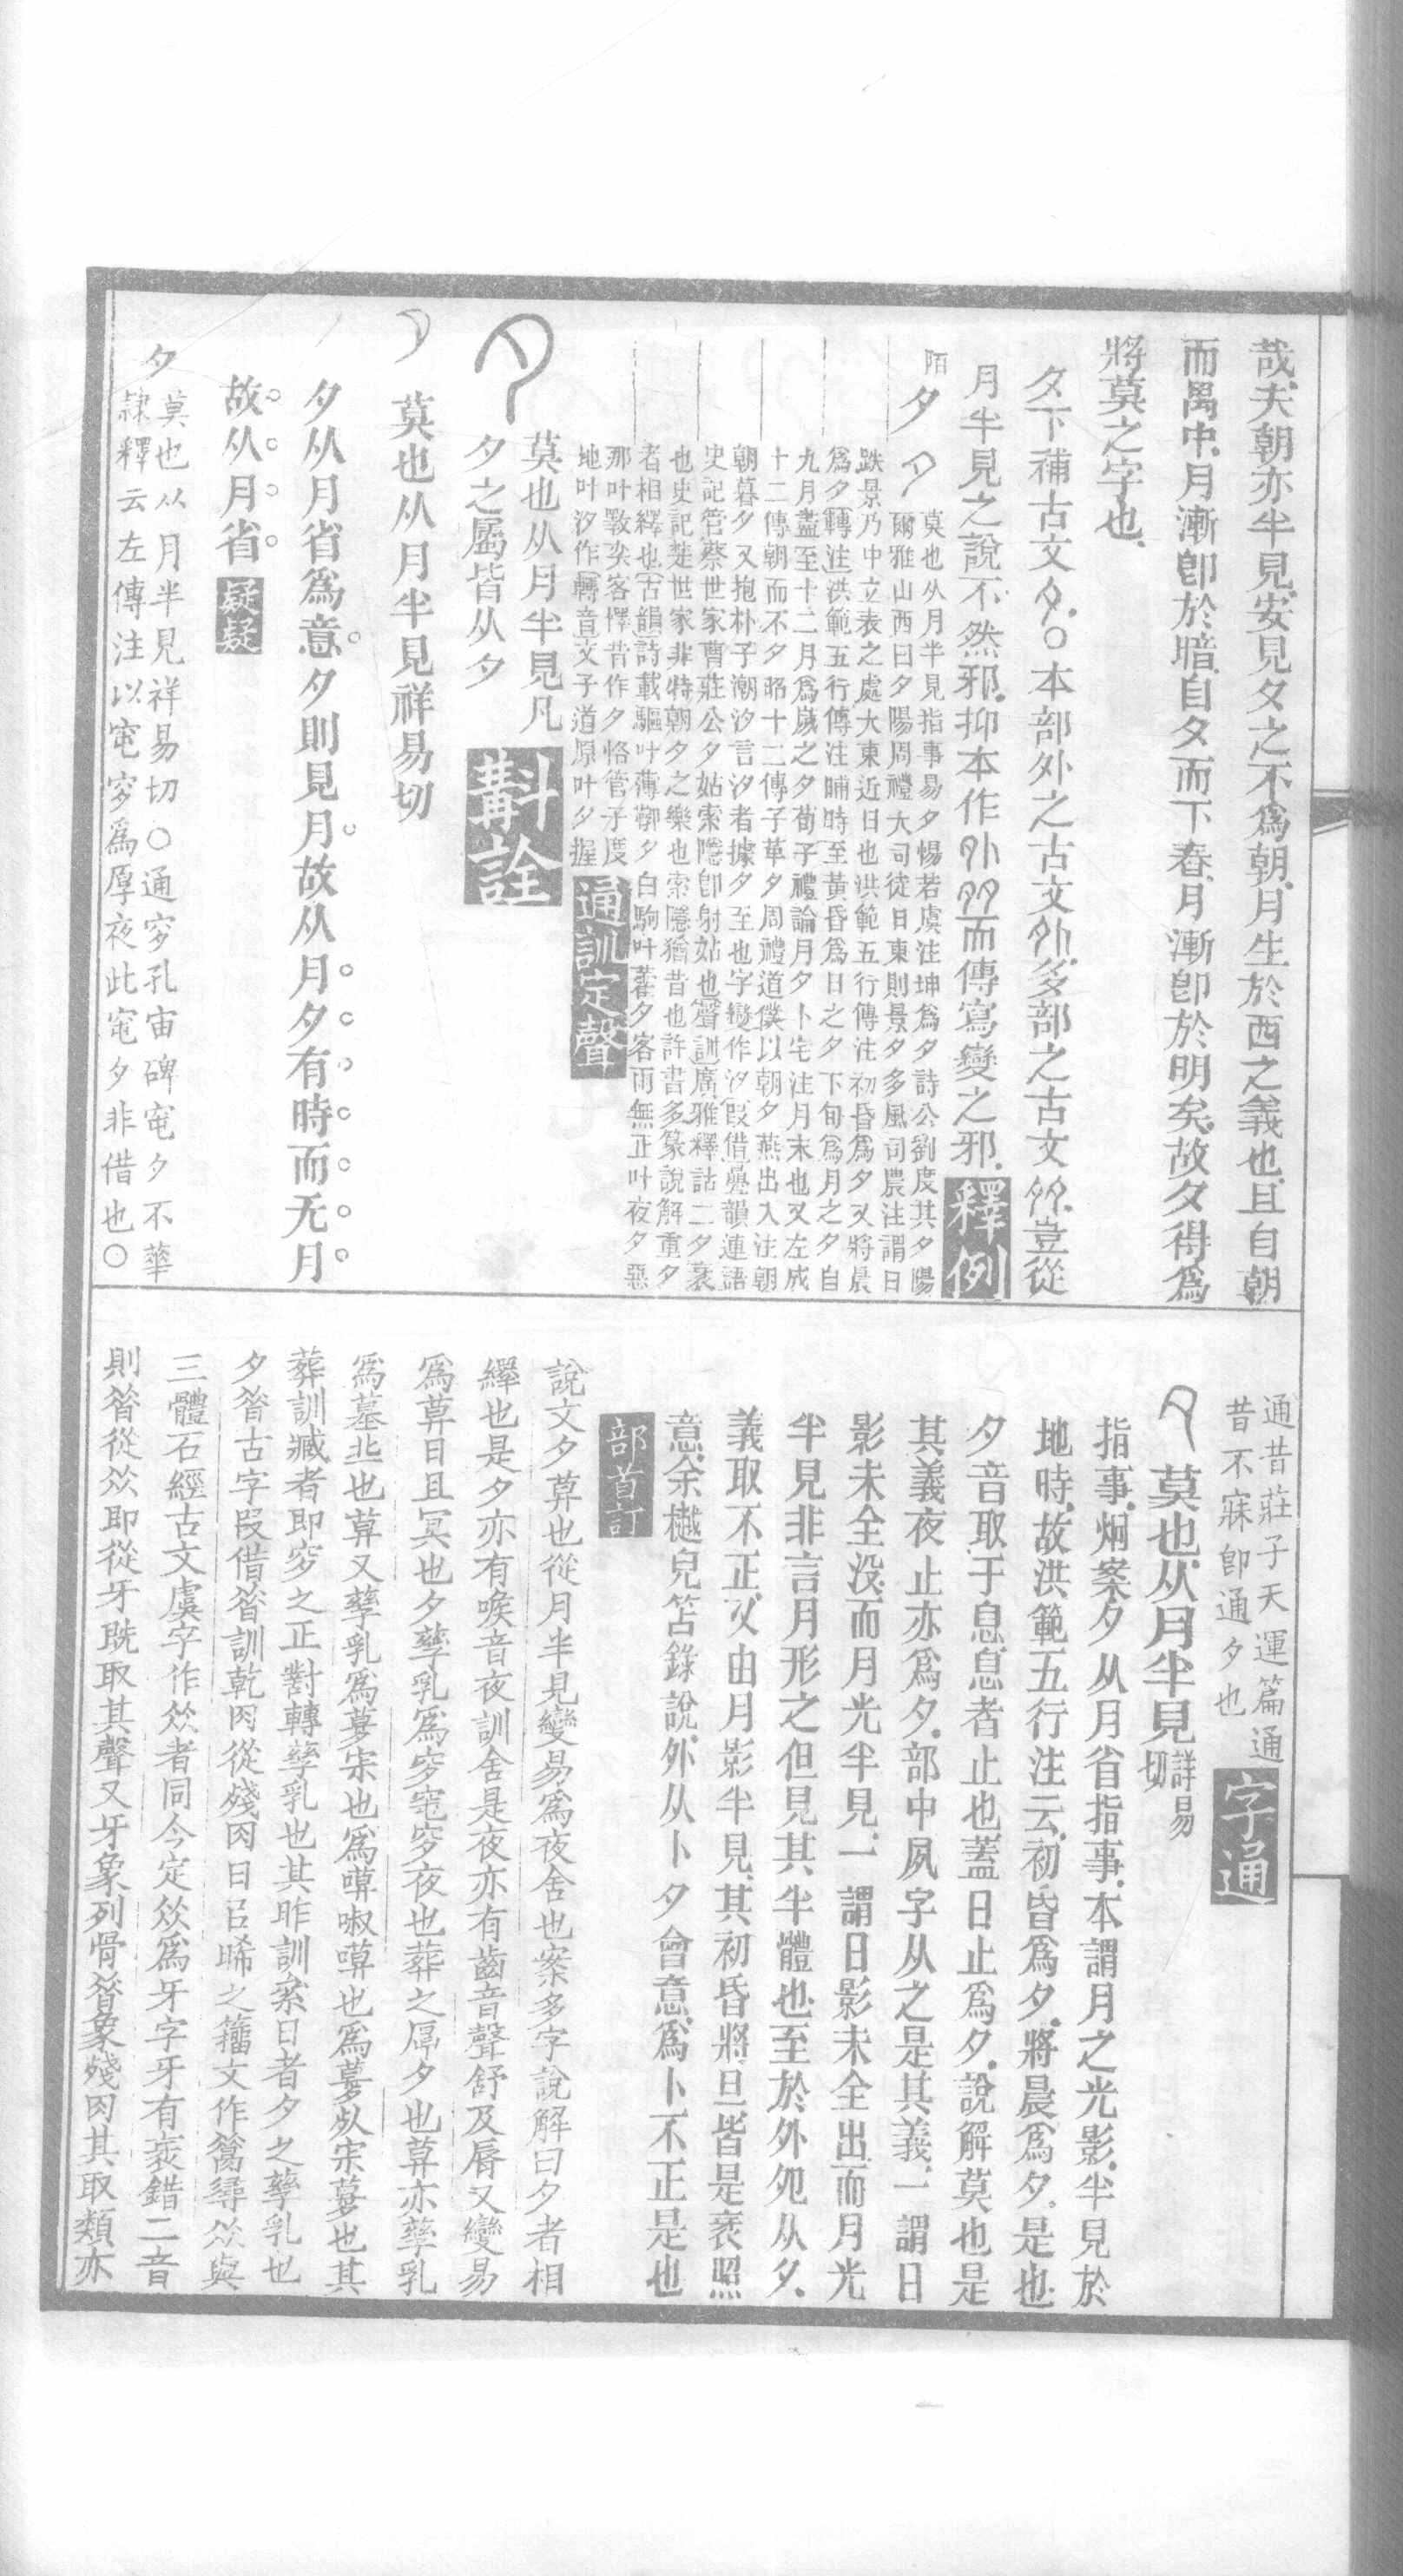 哉夫朝亦半見安見夕之不爲朝月生於西之義也且自朝
而禺中月漸卽於暗自夕而下舂月漸卽於明矣故夕得爲
將莫之字也
夕下補古文夕○本部外之古文外多部之古文𡖇豈從
月半見之說不然邪抑本作外𡖇而傳寫變之邪釋例
陌
夕
莫也从月半見指事易夕惕若虞注坤爲夕詩公劉度其夕陽
爾雅山西曰夕陽周禮大司徒日東則景夕多風司農注謂日
跌景乃中立表之處大東近日也洪範五行傳注初昏爲夕又將晨
爲夕轉注洪範五行傳注晡時至黃昏爲日之夕下旬爲月之夕自
九月盡至十二月爲歲之夕荀子禮論月夕卜宅注月末也又左成
十二傳朝而不夕昭十二傳子革夕周禮道僕以朝夕燕出入注朝
朝暮夕又抱朴子潮汐言汐者據夕至也字變作汐叚借疊韻連語
史記管蔡世家曹莊公夕姑索隱卽射姑也聲訓廣雅釋詁二夕衺
也史記楚世家非特朝夕之樂也索隱猶昔也許書多篆說解重夕
者相繹也古韻詩載驅叶薄鞹夕白駒叶藿夕客雨無正叶夜夕惡
那叶斁奕客懌昔作夕恪管子度
地叶汐作轉音文子道原叶夕握通訓定聲
莫也从月半見凡
夕之屬皆从夕
斠詮
莫也从月半見祥易切
夕从月省爲意夕則見月故从月夕有時而无月
故从月省疑疑
夕
莫也从月半見祥易切○通穸孔宙碑窀夕不華
隸釋云左傳注以窀穸爲厚夜此窀夕非借也○
通昔莊子天運篇通
昔不寐卽通夕也
字通
莫也从月半見詳易切
指事炯案夕从月省指事本謂月之光影半見於
地時故洪範五行注云初昏爲夕將晨爲夕是也
夕音取于息息者止也蓋日止爲夕說解莫也是
其義夜止亦爲夕部中夙字从之是其義一謂日
影未全沒而月光半見一謂日影未全出而月光
半見非言月形之但見其半體也至於外夗从夕
義取不正又由月影半見其初昏將旦皆是衺照
意余樾兒笘錄說外从卜夕會意爲卜不正是也
部首訂
說文夕莫也從月半見變易爲夜舍也案多字說解曰夕者相
繹也是夕亦有喉音夜訓舍是夜亦有齒音聲舒及脣又變易
爲莫日且冥也夕孳乳爲穸窀穸夜也葬之厚夕也莫亦孳乳
爲墓丘也莫又孳乳爲募宋也爲嗼啾嗼也爲夢外宋募也其
葬訓臧者即穸之正對轉孳乳也其昨訓絫日者夕之孳乳也
夕㫺古字叚借㫺訓乾肉從殘肉日㠯晞之籒文作𦠡尋仌與
三體石經古文虞字作仌者同今定仌爲牙字牙有衺錯二音
則㫺從仌即從牙既取其聲又牙象列骨㫺象殘肉其取類亦